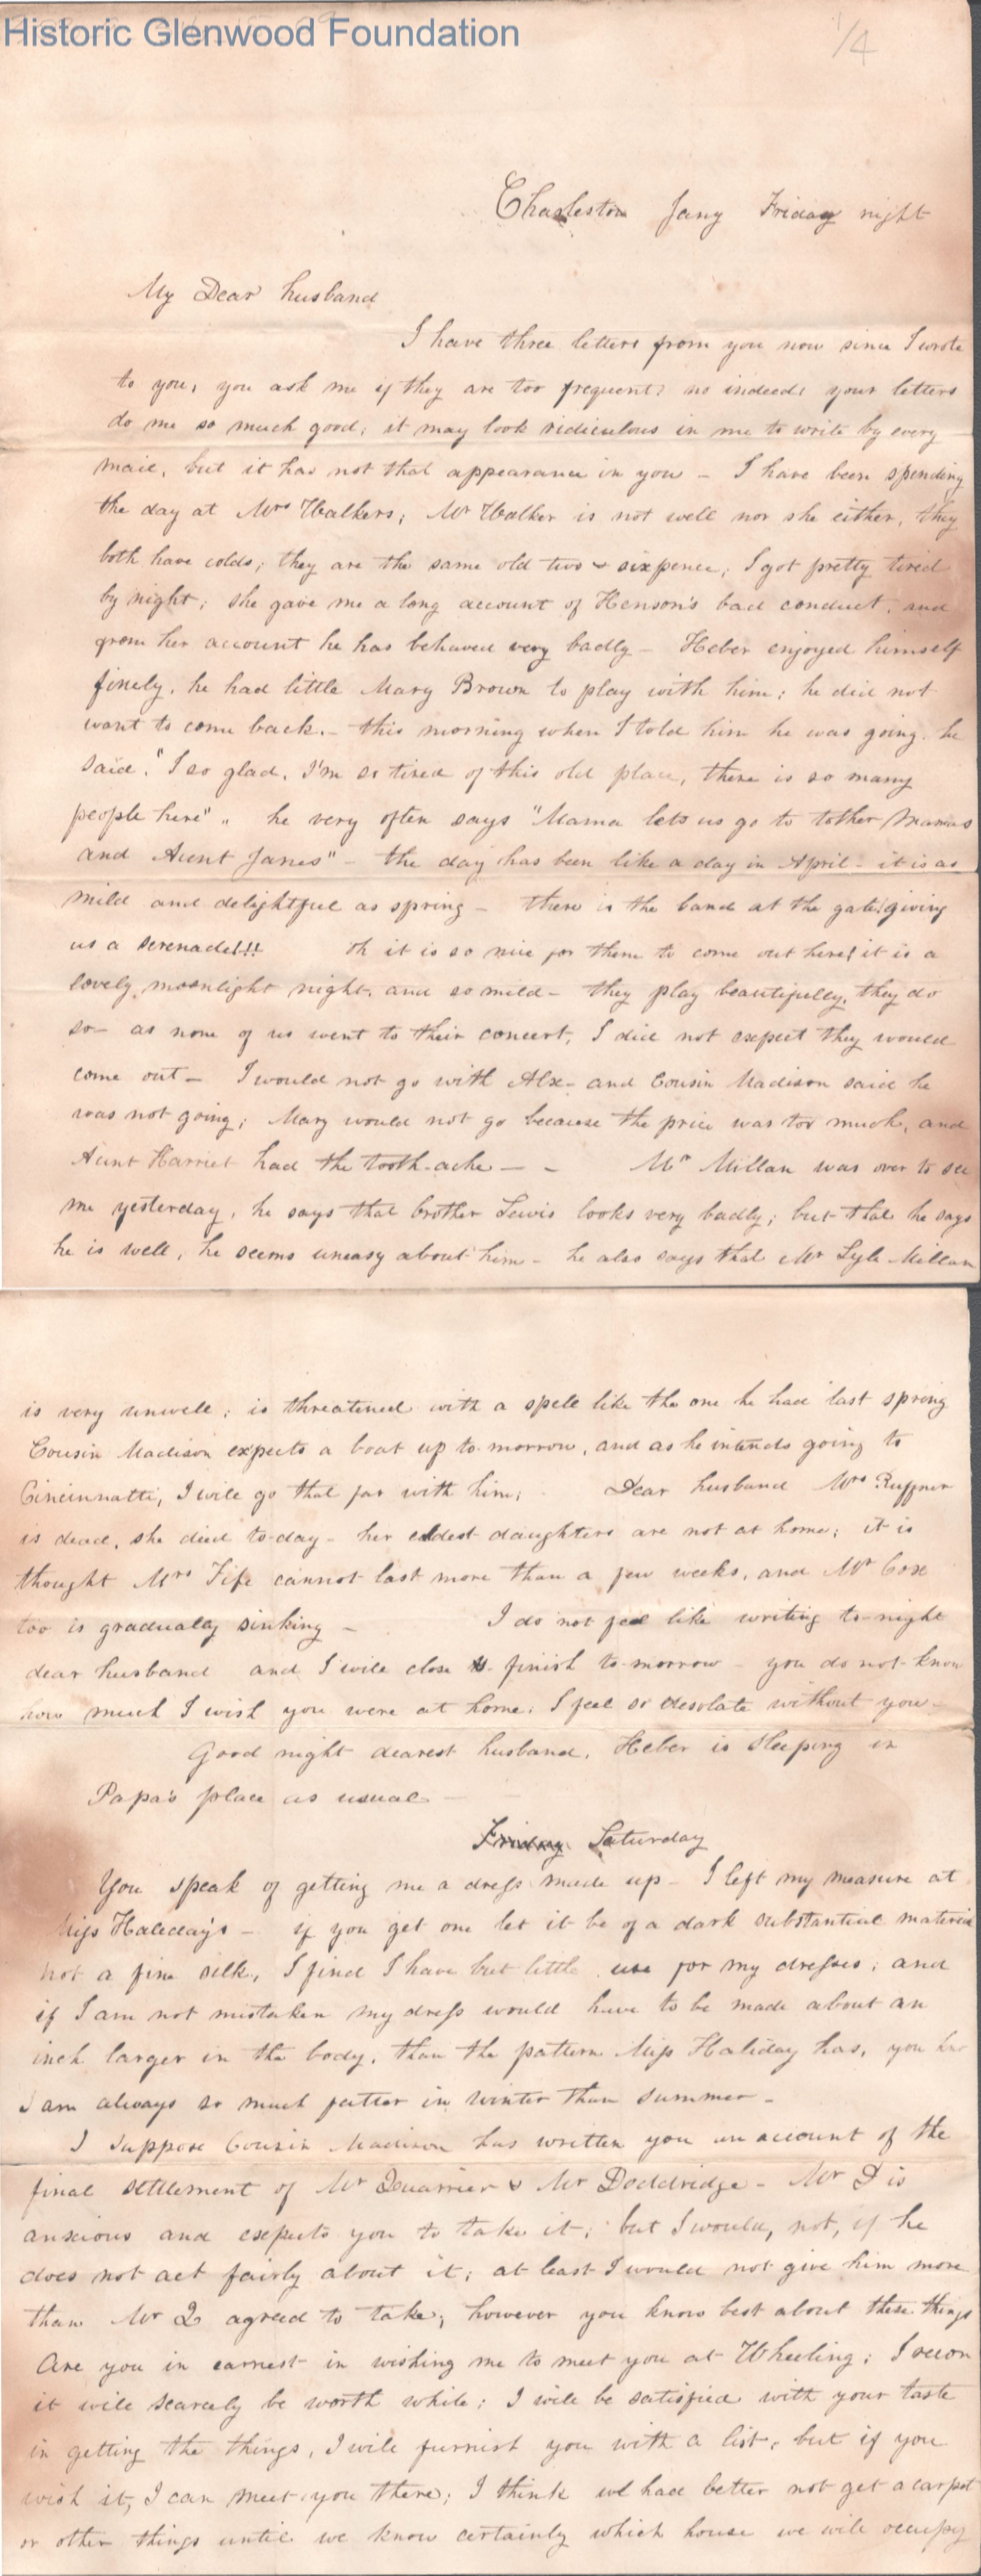 Historic Glenwood Foundation
1/4
Charleston Jany Friday night
My Dear husband
I have three letters from you now since I wrote
to you, you ask me if they are too frequent? no indeed! your letters
do me so much good; it may look ridiculous in me to write by every
mail, but it has not that appearance in you – I have been spending
the day at Mrs Walkers; Mr Walker is not well nor she either, they
both have colds; they are the same old two & sixpence; I got pretty tired
by night; she gave me a long account of Henson's bad conduct, and
from her account he has behaved very badly – Heber enjoyed himself
finely, he had little Mary Brown to play with him; he did not
want to come back. – this morning when I told him he was going. he
said, "I so glad, I'm so tired of this old place, there is so many
people here" " he very often says "Mama lets us go to tother Mamas
and Aunt Janes" – the day has been like a day in April – it is as
mild and delightful as spring – there is the band at the gate! giving
us a serenade!!! Oh it is so nice for them to come out here! it is a
lovely moonlight night, and so mild – they play beautifully, they do
so – as none of us went to their concert, I did not expect they would
come out – I would not go with Alx – and Cousin Madison said he
was not going; Mary would not go because the price was too much, and
Aunt Harriet had the tooth-ache – – Mr Millan was over to see
me yesterday, he says that brother Lewis looks very badly; but that he says
he is well, he seems uneasy about him – he also says that Mr Lyle Millan
is very unwell; is threatened with a spell like the one he had last spring
Cousin Madison expects a boat up to-morrow, and as he intends going to
Cincinnatti, I will go that far with him; Dear husband Mrs Ruffner
is dead, she died to-day – her eldest daughters are not at home; it is
thought Mrs Fife cannot last more than a few weeks, and Mr Cox
too is gradually sinking – I do not feel like writing to-night
dear husband and I will close & finish to-morrow – you do not know
how much I wish you were at home, I feel so desolate without you –
Good night dearest husband, Heber is sleeping in
Papa's place as usual –
Friday Saturday
You speak of getting me a dress made up – I left my measure at
Miss Haliday's – if you get one let it be of a dark substantial material
not a fine silk, I find I have but little use for my dresses; and
if I am not mistaken my dress would have to be made about an
inch larger in the body, than the pattern Miss Haliday has, you
I am always so much fatter in winter than summer –
I suppose Cousin Madison has written you an account of the
final settlement of Mr Quarrier & Mr Doddridge – Mr D is
anxious and expects you to take it; but I would, not, if he
does not act fairly about it; at least I would not give him more
than Mr Q agreed to take; however you know best about these things
Are you in earnest in wishing me to meet you at Wheeling; I recon
it will scarcely be worth while; I will be satisfied with your taste
in getting the things, I will furnish you with a list, but if you
wish it, I can meet you there; I think we had better not get a carpet
or other things until we know certainly which house we will occupy